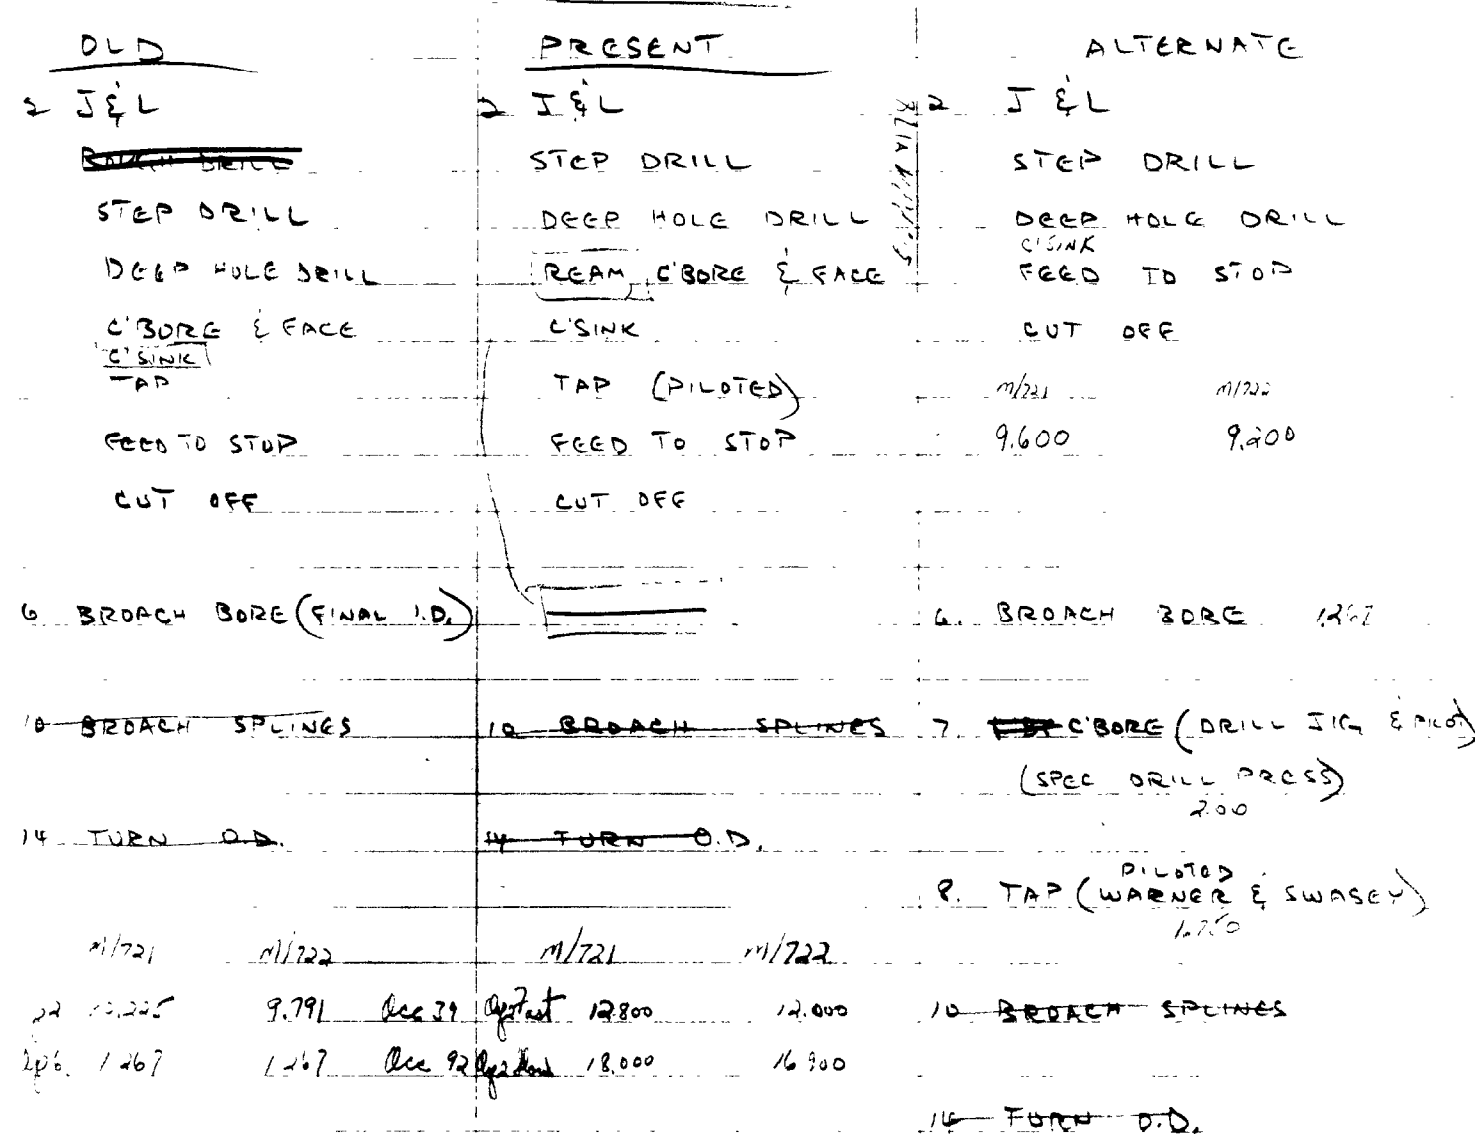 OLD
2 J & L
ROUGH DRILL
STEP DRILL
DEEP HOLE DRILL
C'BORE & FACE
C'SINK
TAP
FEED TO STOP
CUT OFF
6 BROACH BORE (FINAL I.D.)
10 BROACH SPLINES
14 TURN O.D.
M/721 M/722
9.791 Occ 39
1.267 1.267 Occ 92
PRESENT
2 J & L
STEP DRILL
DEEP HOLE DRILL
REAM, C'BORE & FACE
C'SINK
TAP (PILOTED)
FEED TO STOP
CUT OFF
10 BROACH SPLINES
14 TURN O.D.
M/721 M/722
12.800 12.000
18.000 16.900
ALTERNATE
2 J & L
STEP DRILL
DEEP HOLE DRILL
C'SINK
FEED TO STOP
CUT OFF
M/721 M/722
9.600 9.200
6. BROACH BORE 1.267
7. C'BORE (DRILL JIG & PILOT)
(SPEC DRILL PRESS)
2.00
PILOTED
8. TAP (WARNER & SWASEY)
1.750
10 BROACH SPLINES
14 TURN O.D.